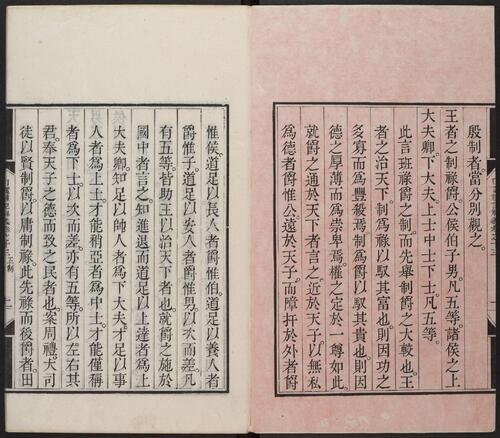 殷制者。當分別觀之。
王者之制祿爵。公侯伯子男凡五等。諸侯之上
大夫卿。下大夫。上士中士下士。凡五等。
此言班祿爵之制。而先舉制爵之大較也。王
者之治天下。制為祿以馭其富也。則因功之
多寡。而為豐殺焉。制為爵以馭其貴也。則因
德之厚薄。而為崇卑焉。權之定於一尊如此。
就爵之通於天下者言之。近於天子。以無私
為德者爵惟公。遠於天子。而障扞於外者爵
惟侯。道足以長人者爵惟伯。道足以養人者
爵惟子。道足以安人者爵惟男。以次而差。凡
有五等。皆助王以治天下者也。就爵之施於
國中者言之。知進退而道足以上達者為上
大夫卿。知足以帥人者為下大夫。才足以事
人者為上士。才能稍亞者為中士。才能僅稱
者為下士。以次而差。亦有五等。所以左右其
君。奉天子之德而致之民者也。案周禮。犬司
徒以賢制爵。以庸制祿。此先祿而後爵者。田